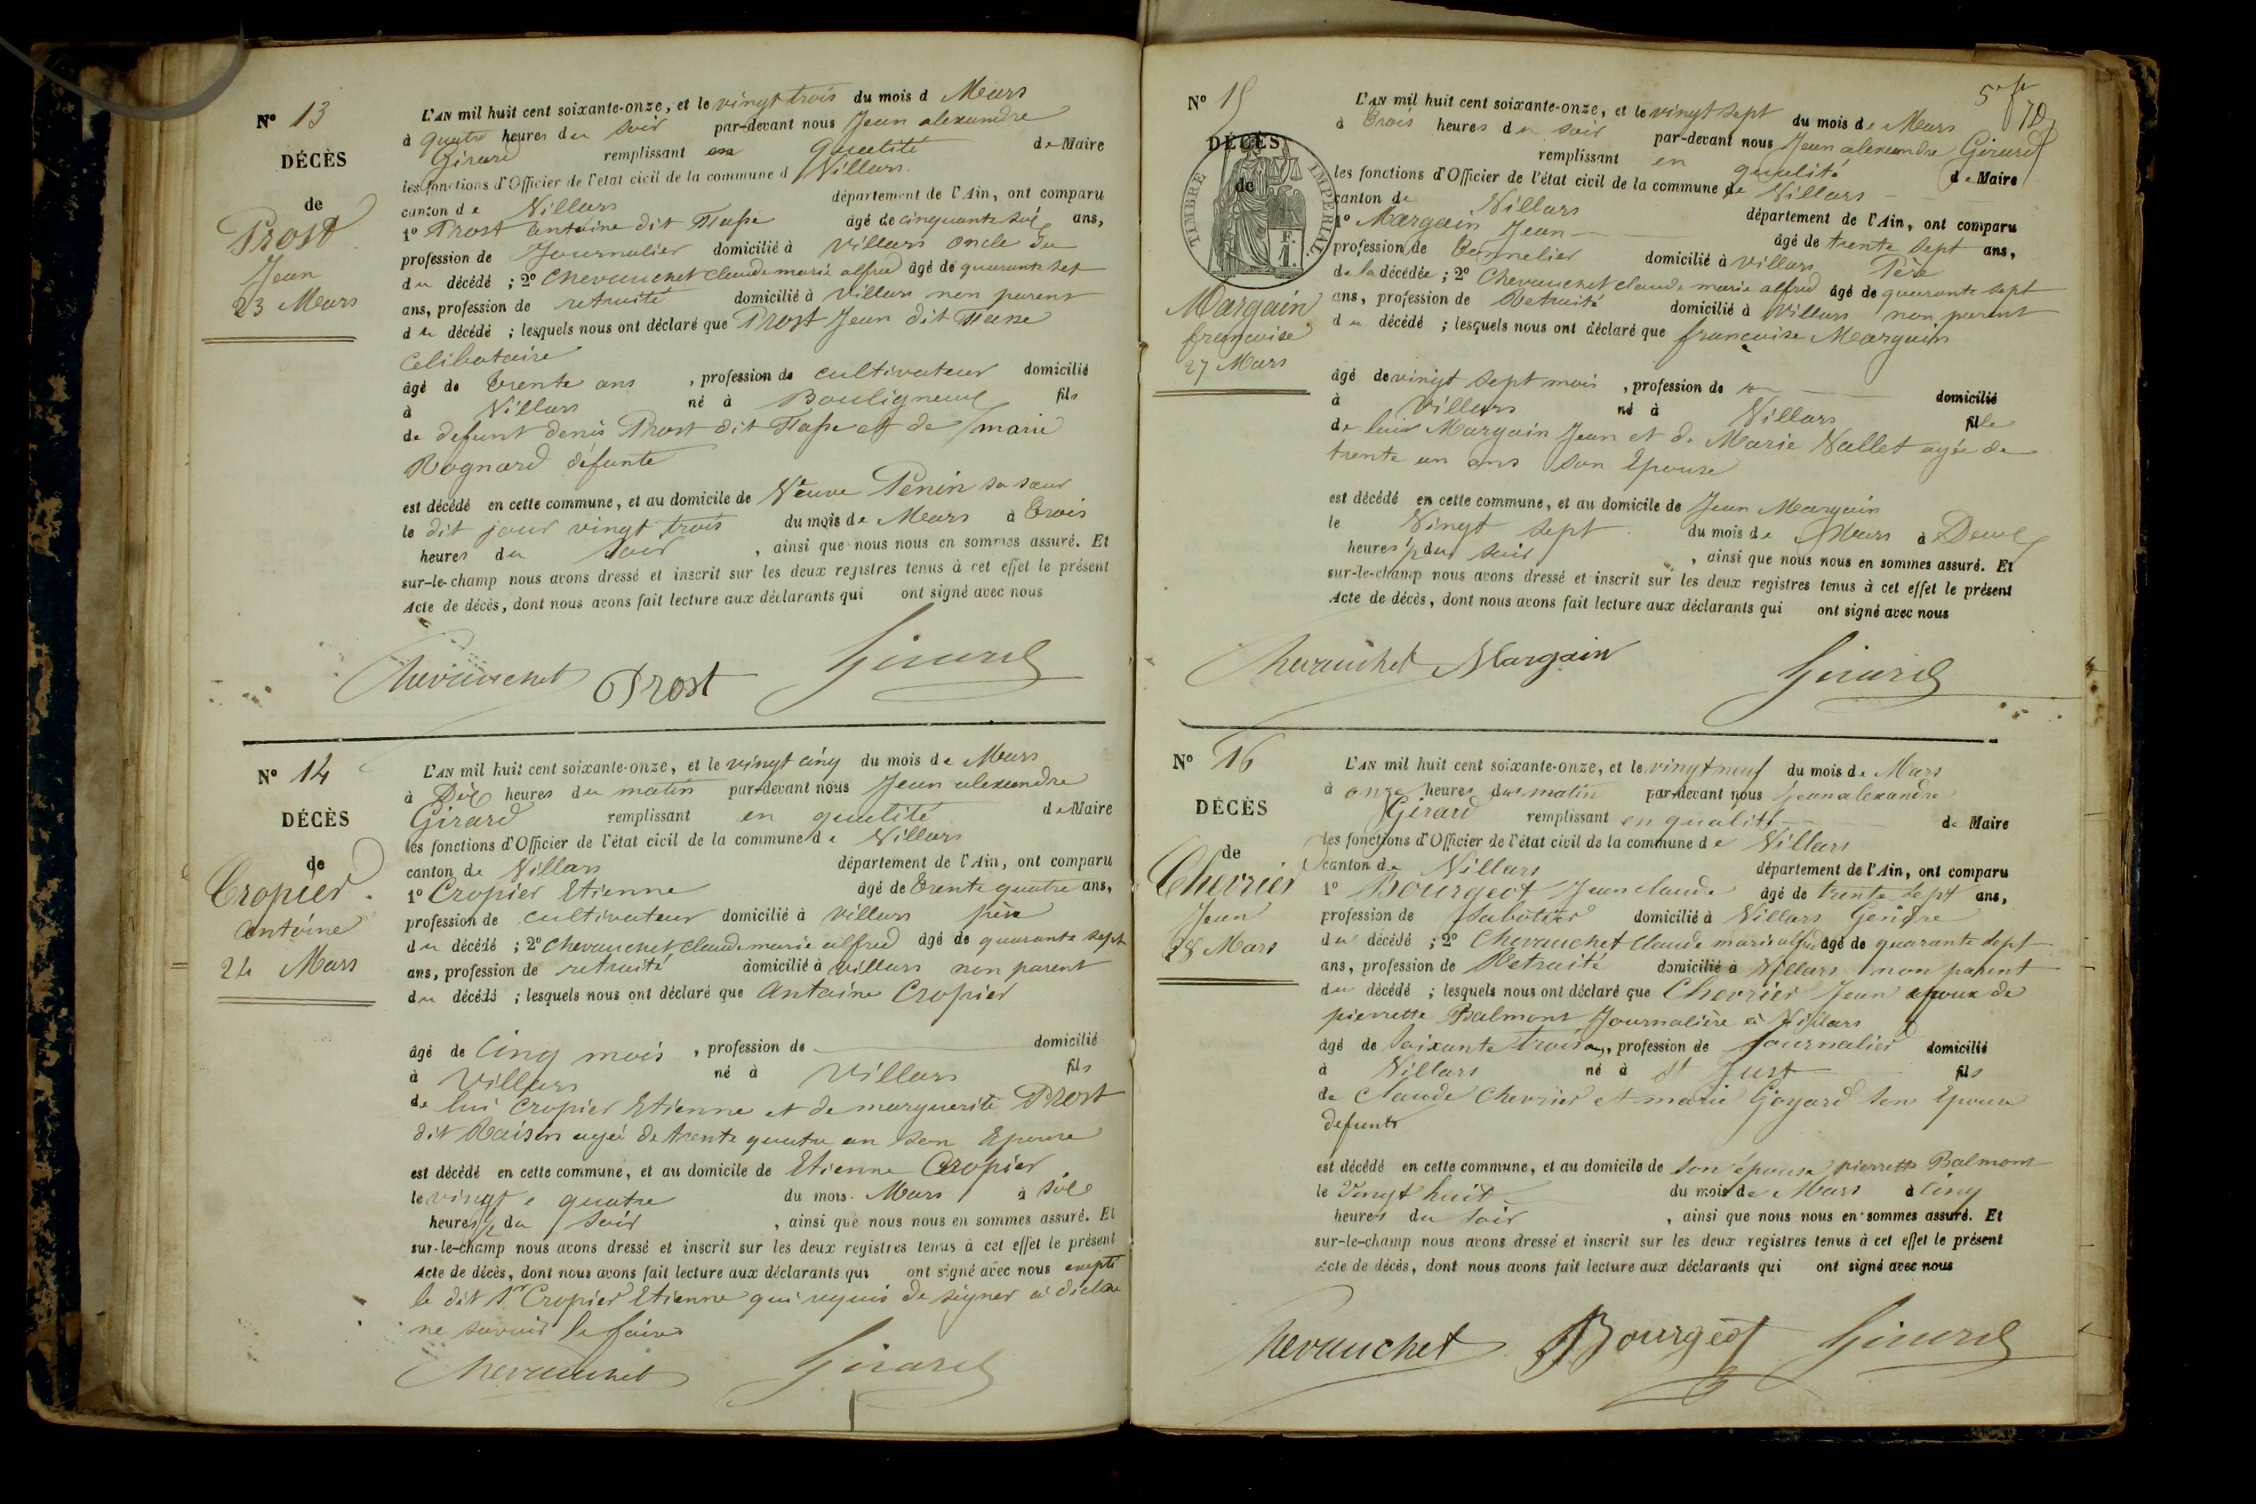 N° 13
DÉCÈS
de
Prost
Jean
23 Mars
L'AN mil huit cent soixante-onze, et le vingt trois du mois d Mars
à quatre heures du soir par-devant nous Jean alexandre
Girard remplissant en qualité de Maire
les fonctions d'Officier de l'état civil de la commune d Villars
canton de Villars département de l'Ain, ont comparu
1° Prost antoine dit âgé de cinquante six ans,
profession de Journalier domicilié à Villars oncle
du décédé ; 2° Chevauchet Claude marie alfred âgé de quarante sept
ans, profession de retraité domicilié à Villars non parent
du décédé ; lesquels nous ont déclaré que Prost Jean dit
Celibataire
âgé de trente ans , profession de cultivateur domicilié
à Villars né à Bouligneux fils
de defunt denis Prost dit et de marie
Rognard défunte
est décédé en cette commune, et au domicile de Veuve Penin sa sœur
le dit jour vingt trois du mois de Mars à trois
heures du soir , ainsi que nous nous en sommes assuré. Et
sur-le-champ nous avons dressé et inscrit sur les deux registres tenus à cet effet le présent
Acte de décès, dont nous avons fait lecture aux déclarants qui ont signé avec nous
Chevauchet Prost Girard
N° 14
DÉCÈS
de
Cropier
antoine
24 Mars
L'AN mil huit cent soixante-onze, et le vingt cinq du mois de Mars
à Dix heures du matin par-devant nous Jean alexandre
Girard remplissant en qualité de Maire
les fonctions d'Officier de l'état civil de la commune de Villars
canton de Villars département de l'Ain, ont comparu
1° Cropier Etienne âgé de trente quatre ans,
profession de cultivateur domicilié à villars père
du décédé ; 2° Chevauchet Claude marie alfred âgé de quarante sept
ans, profession de retraité domicilié à villars non parent
du décédé ; lesquels nous ont déclaré que antoine Cropier
âgé de Cinq mois , profession de domicilié
à Villars né à Villars fils
de lui Cropier Etienne et de marguerite Prost
dit Raison agée de trente quatre an son Epouse
est décédé en cette commune, et au domicile de Etienne Cropier
le vingt e quatre du mois Mars à six
heures ½ du soir , ainsi que nous nous en sommes assuré. Et
sur-le-champ nous avons dressé et inscrit sur les deux registres tenus à cet effet le présent
Acte de décès, dont nous avons fait lecture aux déclarants qui ont signé avec nous
le dit Sr Cropier Etienne qui requis de signer a déclaré
ne savoir le faire
Chevauchet Girard
N° 15
DÉCÈS
de
TIMBRE IMPÉRIAL
Margain
françoise
27 Mars
L'AN mil huit cent soixante-onze, et le vingt sept du mois de Mars
à trois heures du soir par-devant nous Jean alexandre Girard
remplissant en qualité de Maire
les fonctions d'Officier de l'état civil de la commune de Villars
canton de Villars département de l'Ain, ont comparu
1° Margain Jean âgé de trente sept ans,
profession de domicilié à Villars Père
de la décédée ; 2° Chevauchet claude marie alfred âgé de quarante sept
ans, profession de Retraité domicilié à Villars non parent
du décédé ; lesquels nous ont déclaré que françoise Margain
âgé de vingt sept mois , profession de domicilié
à Villars né à Villars fille
de lui Margain Jean et de Marie Vallet agée de
trente un ans son Epouse
est décédé en cette commune, et au domicile de Jean Margain
le Vingt sept du mois de Mars à Deux
heures ½ du soir , ainsi que nous nous en sommes assuré. Et
sur-le-champ nous avons dressé et inscrit sur les deux registres tenus à cet effet le présent
Acte de décès, dont nous avons fait lecture aux déclarants qui ont signé avec nous
Chevauchet Margain Girard
N° 16
DÉCÈS
de
Chevrier
Jean
28 Mars
L'AN mil huit cent soixante-onze, et le vingt neuf du mois de Mars
à onze heures du matin par-devant nous Jean alexandre
Girard remplissant en qualité de Maire
les fonctions d'Officier de l'état civil de la commune de Villars
canton de Villars département de l'Ain, ont comparu
1° Bourgeot Jean claude âgé de trente sept ans,
profession de Sabotier domicilié à Villars Gendre
du décédé ; 2° Chevauchet Claude marie alfred âgé de quarante sept
ans, profession de Retraité domicilié à Villars non parent
du décédé ; lesquels nous ont déclaré que Chevrier Jean epoux de
pierrette Balmont Journalière à Villars
âgé de Soixante trois ans, profession de Journalier domicilié
à Villars né à St Just fils
de Claude Chevrier et marie Goyard son Epouse
defunts
est décédé en cette commune, et au domicile de son épouse pierrette Balmont
le Vingt huit du mois de Mars à Cinq
heures du soir , ainsi que nous nous en sommes assuré. Et
sur-le-champ nous avons dressé et inscrit sur les deux registres tenus à cet effet le présent
Acte de décès, dont nous avons fait lecture aux déclarants qui ont signé avec nous
Chevauchet Bourgeot Girard